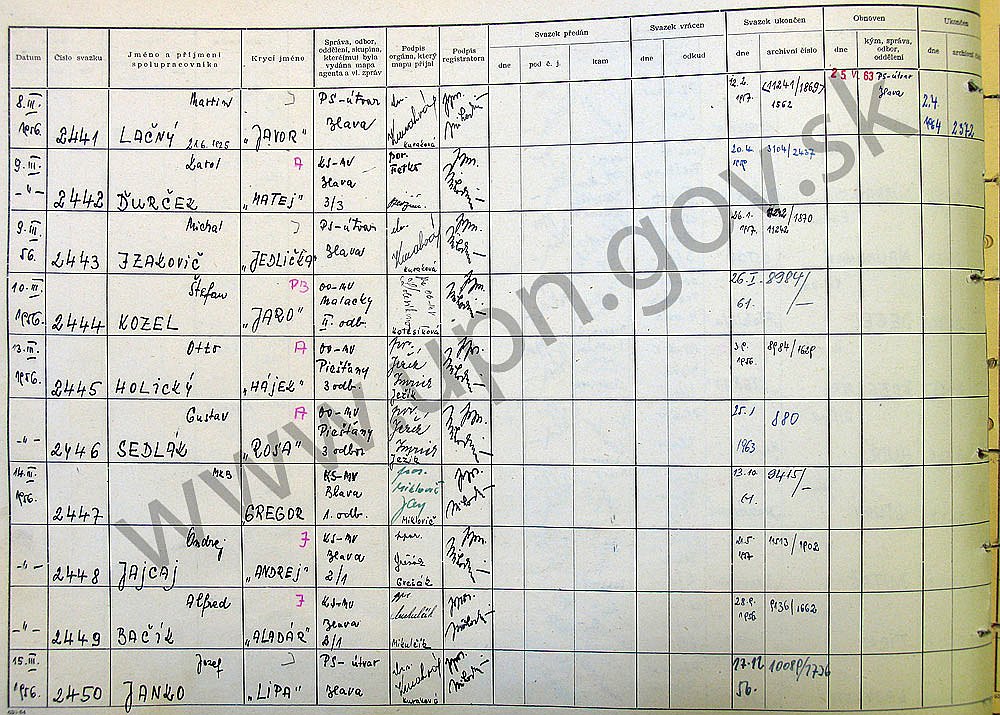 Datum
Číslo svazku
Jméno a příjmení
spolupracovníka
Krycí jméno
Správa, odbor,
oddělení, skupina,
kterémuž byla
vydána mapa
agenta a vl. zpráv
Podpis
orgána, který
mapu přijal
Podpis
registrátora
Svazek předán
dne
pod č. j.
kam
Svazek vrácen
dne
odkud
Svazek ukončen
dne
archivní číslo
Obnoven
dne
kým, správa,
odbor,
oddělení
Ukončen
dne
8.III.
1956.
2441
Martin
LAČNÝ
21.6.1925
"JAVOR"
PS-útvar
Blava
Kuraková
12.2.
1957.
1562
25 VI. 63
PS-útvar
Blava
2.4.
1964
2372
9.III.
-"-
2442
Karol
ĎURČEK
A
"MATEJ"
KS-MV
Blava
3/3
por.
20.4.
3104/2437
9.III.
56.
2443
Michal
IZAKOVIČ
"JEDLIČKA"
PS-útvar
Blava
Kuraková
26.1.
1957.
11242
1870
10.III.
1956.
2444
Štefan
KOZEL
PB
"JARO"
OO-MV
Malacky
II. odb.
Kotesíková
26.I.
61.
8984/-
13.III.
1956.
2445
Otto
HOLICKÝ
A
"HÁJEK"
OO-MV
Piešťany
3 odb.
por.
Ježík
1956.
8984/1629
-"-
2446
Gustav
SEDLÁK
A
"ROSA"
OO-MV
Piešťany
3 odbor
por.
Ježík
25.1
1963
880
14.III.
1956.
2447
MKB
"GREGOR
KS-MV
Blava
1. odb.
por.
Miklovič
Ján
Miklovič
13.10.
61.
9415/-
-"-
2448
Ondrej
JAJCAJ
J
"ANDREJ"
KS-MV
Blava
2/1
Grešák
21.5.
1957
11513/1902
-"-
2449
Alfred
BAČÍK
J
"ALADÁR"
KS-MV
Blava
2/1
Mikulčík
28.9.
1956
9136/1662
15.III.
1956.
2450
Jozef
JANKO
"LIPA"
PS-útvar
Blava
Kuraková
17.12
56.
10089/1736
www.upn.gov.sk